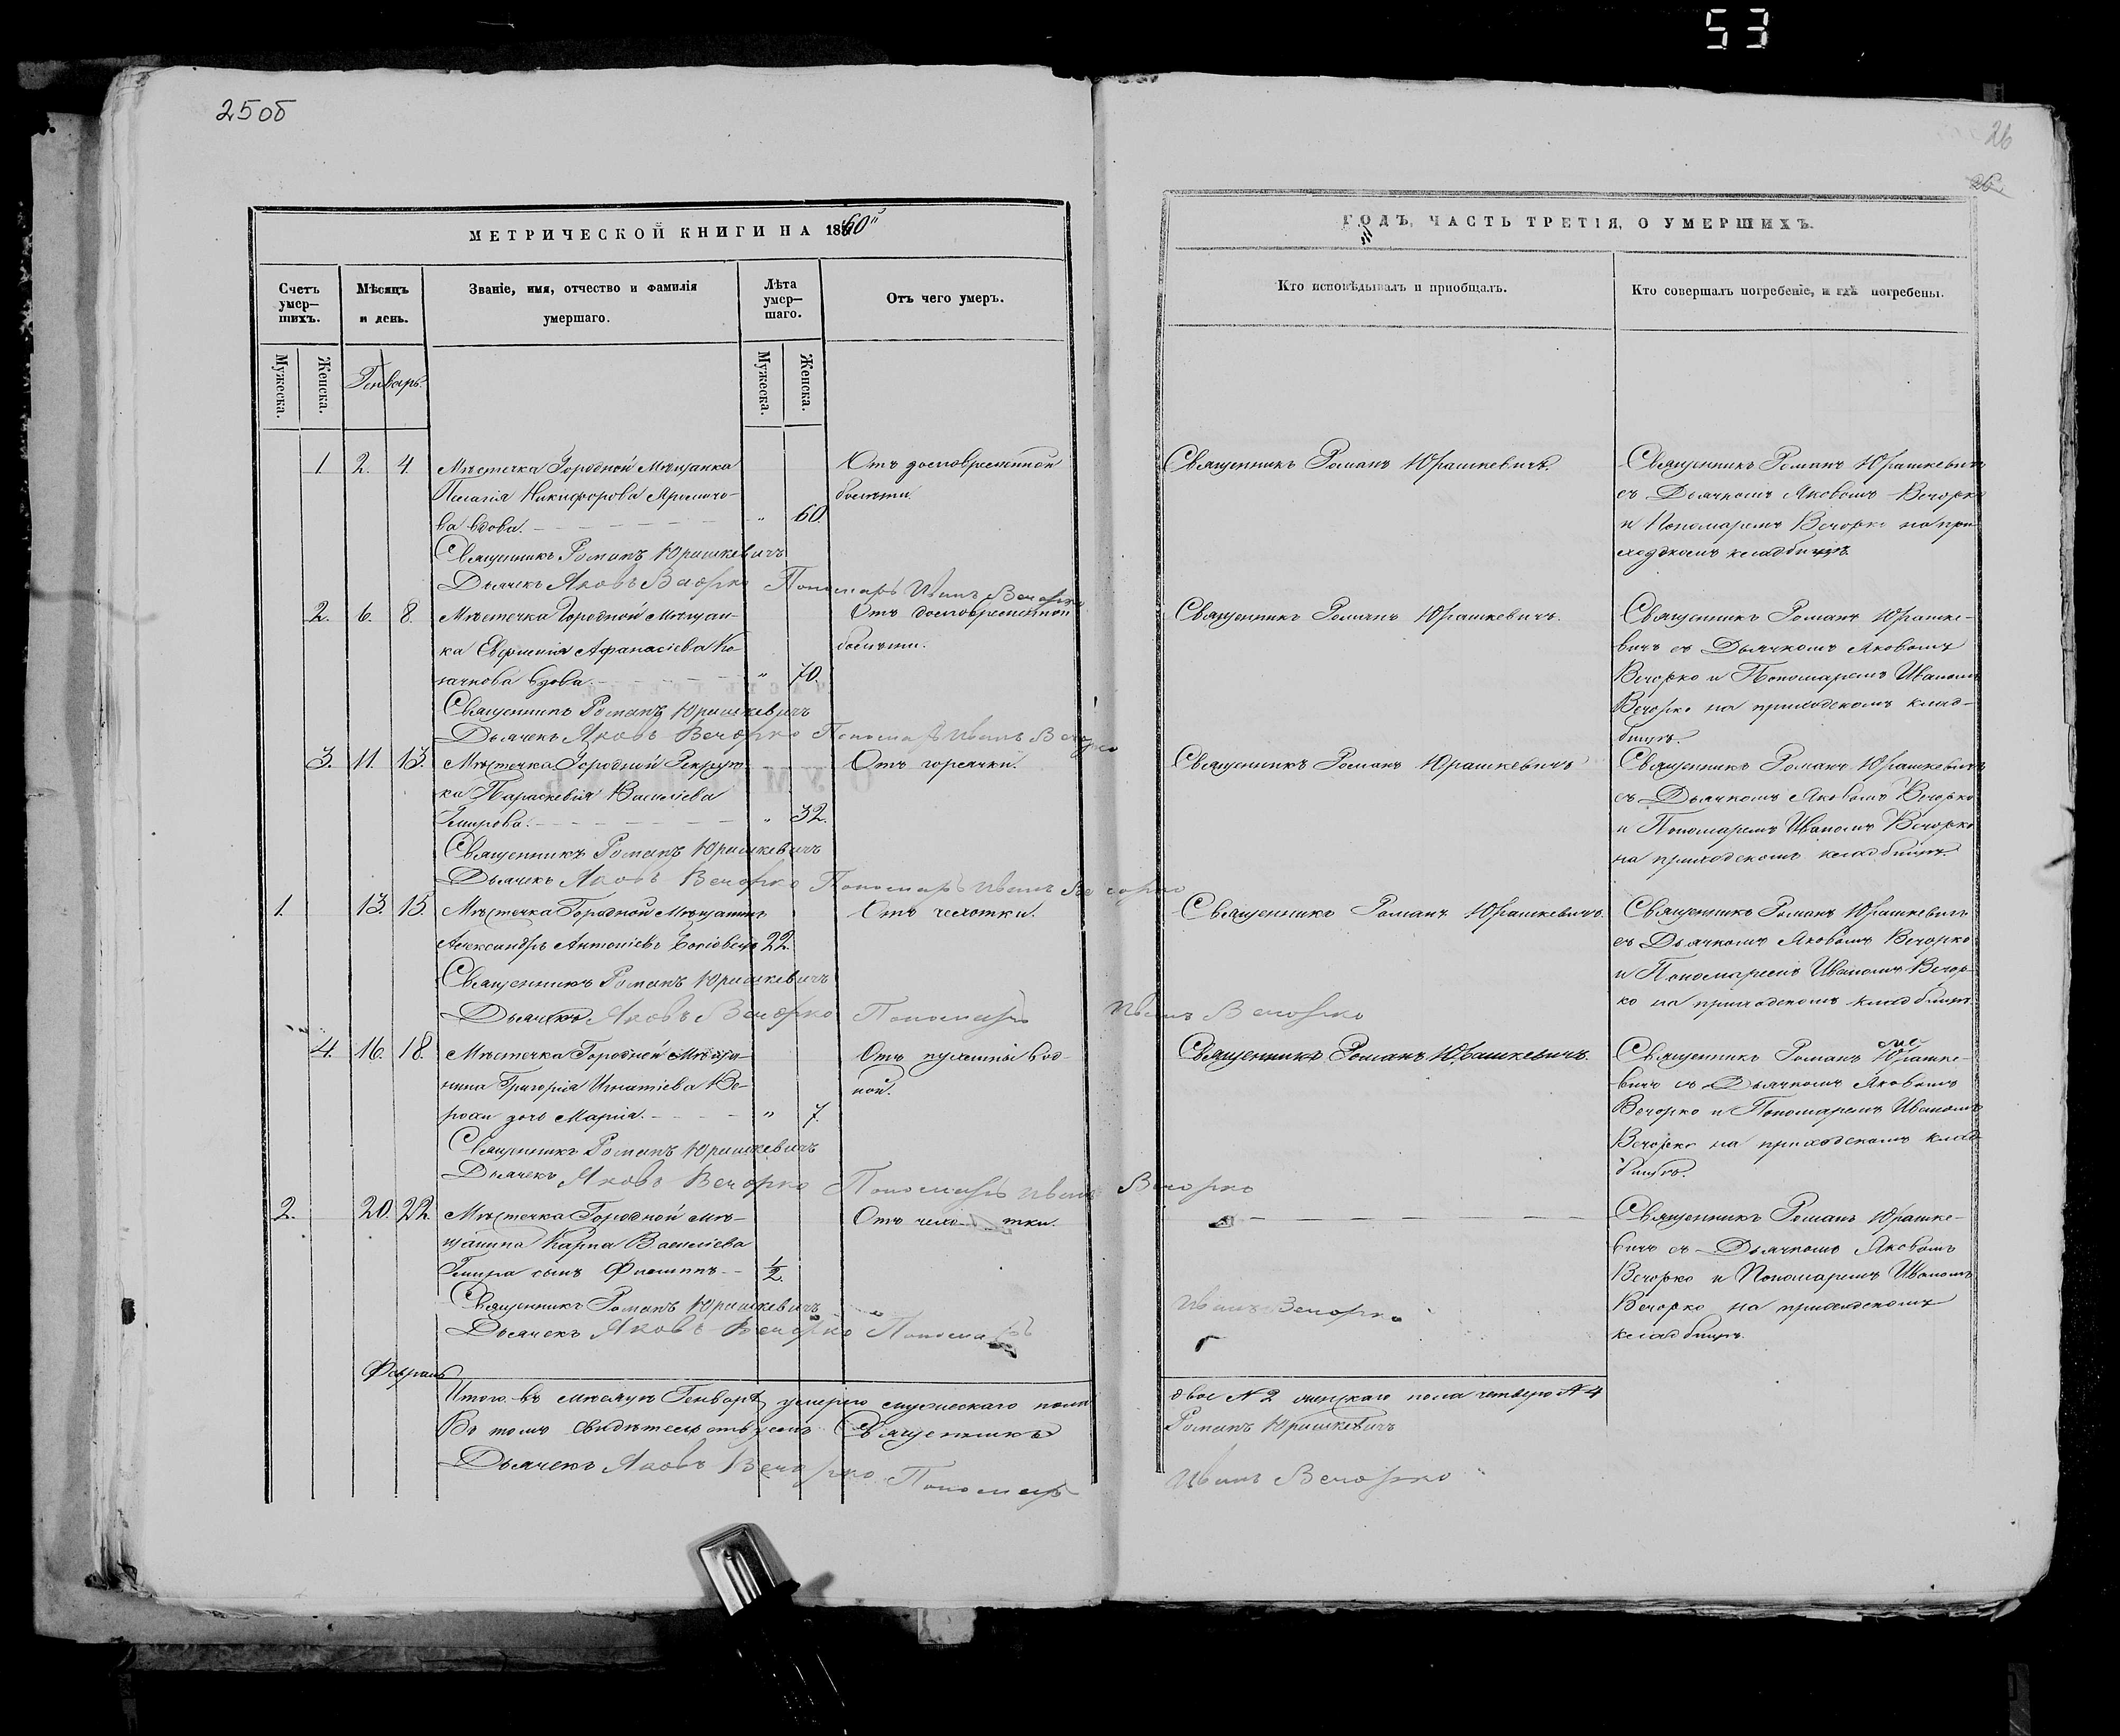 53
25об
26
26
МЕТРИЧЕСКОЙ КНИГИ НА 1860
ГОДЪ, ЧАСТЬ ТРЕТІЯ, О УМЕРШИХЪ.
Счетъ умер–шихъ.
Мѣсяцъ и день.
Званіе, имя, отчество и фамилія умершаго.
Лѣта умер–шаго.
Отъ чего умеръ.
Кто исповѣдывалъ и пріобщалъ.
Кто совершалъ погребеніе, и гдѣ погребены.
Мужеска.
Женска.
Генварь.
Мужеска.
Женска.
1 2. 4. Мѣстечка Городной Мѣщанка
Пелагія Никифорова
ва вдова. " 60.
Отъ долговременной
болѣзни.
Священникъ Романъ Юрашкевичъ.
Священникъ Романъ Юрашкевичъ
съ Дьячкомъ Яковомъ Вечорко
и Пономаремъ Вечорко на при-
ходскомъ кладбищѣ.
Священникъ Романъ Юрашкевичъ
Дьячекъ Яковъ Вечорко Пономарь Иванъ Вечорко
2. 6. 8. Мѣстечка Городной Мѣщан-
ка Евфимія Афанасіева Ко-
лачкова вдова. " 70.
Отъ долговременной
болѣзни.
Священникъ Романъ Юрашкевичъ.
Священникъ Романъ Юрашке-
вичъ съ Дьячкомъ Яковомъ
Вечорко и Пономаремъ Иваномъ
Вечорко на приходскомъ клад-
бищѣ.
Священникъ Романъ Юрашкевичъ
Дьячекъ Яковъ Вечорко Пономарь Иванъ Вечорко
3. 11. 13. Мѣстечка Городной Рекрут-
ка Параскевія Василіева
" 32.
Отъ горячки.
Священникъ Романъ Юрашкевичъ
Священникъ Романъ Юрашкевичъ
съ Дьячкомъ Яковомъ Вечорко
и Пономаремъ Иваномъ Вечорко
на приходскомъ кладбищѣ.
Священникъ Романъ Юрашкевичъ
Дьячекъ Яковъ Вечорко Пономарь Иванъ Вечорко
1. 13. 15. Мѣстечка Городной Мѣщанинъ
Александръ Антоніевъ 22.
Отъ чехотки.
Священникъ Романъ Юрашкевичъ.
Священникъ Романъ Юрашкевичъ
съ Дьячкомъ Яковомъ Вечорко
и Пономаремъ Иваномъ Вечор-
ко на приходскомъ кладбищѣ.
Священникъ Романъ Юрашкевичъ
Дьячекъ Яковъ Вечорко Пономарь Иванъ Вечорко
4. 16. 18. Мѣстечка Городной Мѣща-
нина Григорія Игнатіева
дочь Марія. " 7.
Отъ пухлины вод-
ной.
Священникъ Романъ Юрашкевичъ.
Священникъ Романъ Юрашке-
вичъ съ Дьячкомъ Яковомъ
Вечорко и Пономаремъ Иваномъ
Вечорко на приходскомъ клад-
бищѣ.
Священникъ Романъ Юрашкевичъ
Дьячекъ Яковъ Вечорко Пономарь Иванъ Вечорко
2. 20. 22. Мѣстечка Городной Мѣ-
щанина Карпа Василіева
сынъ Филиппъ. 1/2.
Отъ чехотки.
Священникъ Романъ Юрашке-
вичъ съ Дьячкомъ Яковомъ
Вечорко и Пономаремъ Иваномъ
Вечорко на приходскомъ
кладбищѣ.
Священникъ Романъ Юрашкевичъ
Дьячекъ Яковъ Вечорко Пономарь Иванъ Вечорко
Февраль
Итого въ мѣсяцѣ Генварѣ умерло мужескаго пола двое № 2 женскаго пола четверо № 4
Въ томъ свидѣтельствуемъ Священникъ Романъ Юрашкевичъ
Дьячекъ Яковъ Вечорко Пономарь Иванъ Вечорко